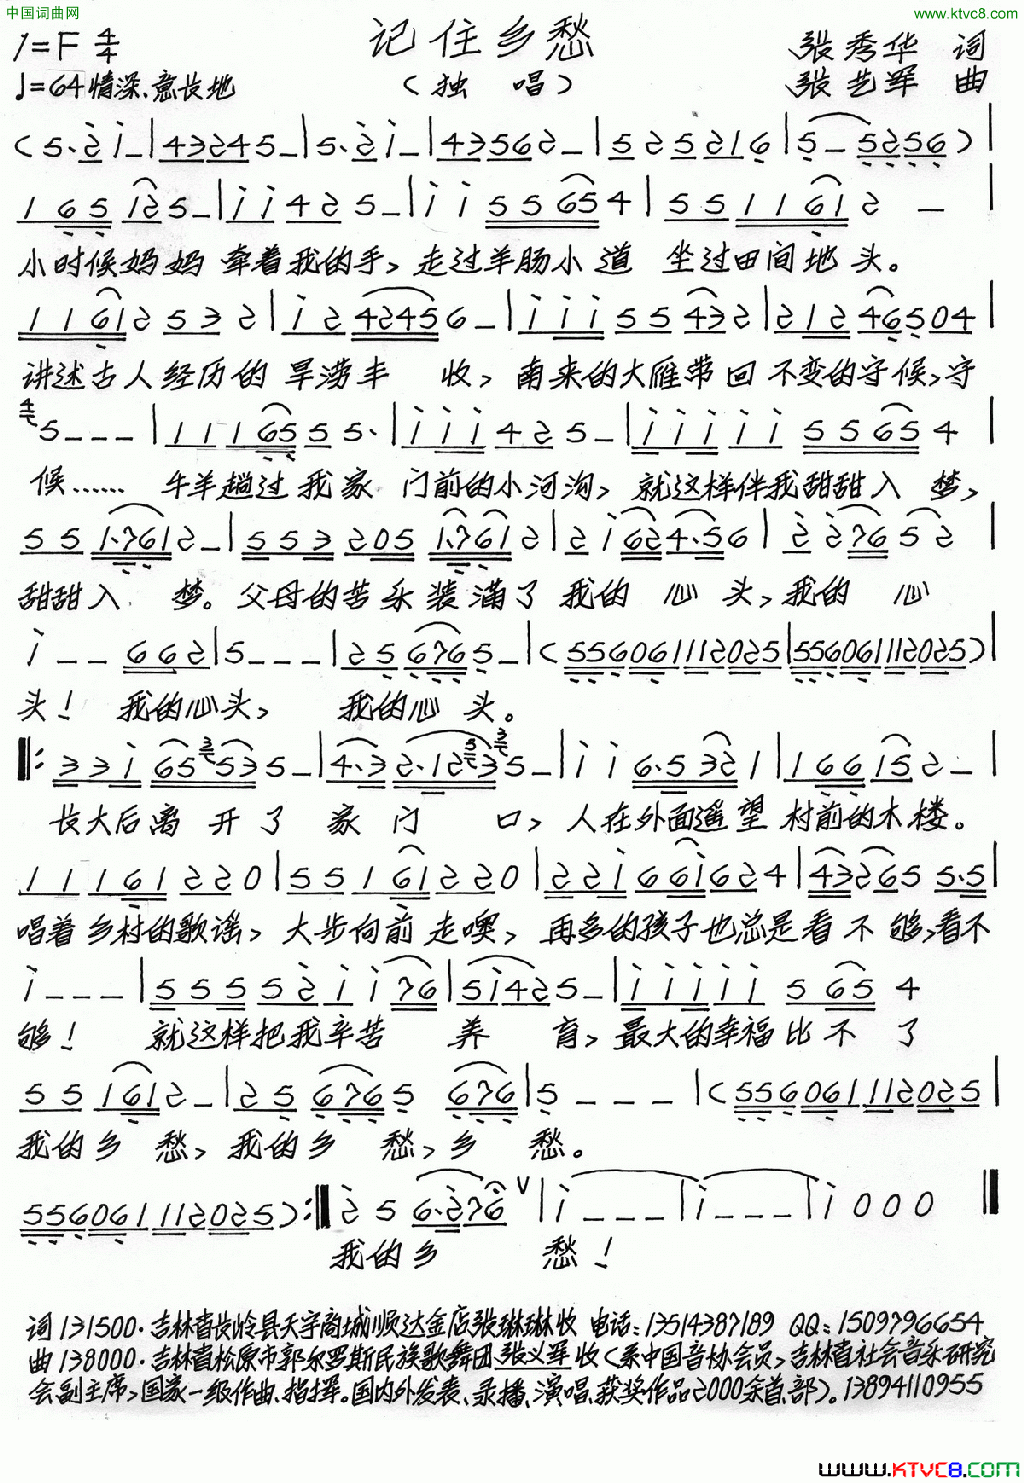 中国词曲网
www.ktvc8.com
1=F 4/4
记住乡愁
张秀华 词
♩=64 情深、意长地
（独 唱）
张艺军 曲
(5·2i–|43245–|5·2i–|43562–|525216|5–5256)|
165125–|ii425–|ii55654|5511612–
小时候妈妈牵着我的手，走过羊肠小道 坐过田间地头。
11612532|i242456–|iii55432|21246504|
讲述古人经历的旱涝丰 收，南来的大雁带回不变的守候，守
5–––|1116555·|iii425–|iiiii55654|
候…… 牛羊趟过我家 门前的小河沟，就这样伴我甜甜入 梦，
551·7612–|5532051·7612|2i624·56|227652|
甜甜入 梦。父母的苦乐装满了 我的 心 头，我的 心
i––662|5–––|256765–|(556061112025|556061112025)|
头！ 我的心头， 我的心 头。
‖:33i65535–|4·32·1235–|ii6·5321|166152–|
长大后离 开 了 家 门 口，人在外面遥望村前的木楼。
11161220|55161220|22i66i624|432655·5|
唱着乡村的歌谣，大步向前走噢，再多的孩子也总是看不够，看不
i–––|55552ii76|5i425–|iiiii5654
够！ 就这样把我辛苦 养 育，最大的幸福比不了
551612–|256765676|5–––|(556061112025|
我的乡 愁，我的乡 愁，乡 愁。
556061112025):‖256·276∨|i–––|i–––|i000‖
我的乡 愁！
词131500·吉林省长岭县天宇商城顺达金店张琳琳收 电话：13514387189 QQ：1509796654
曲138000·吉林省松原市郭尔罗斯民族歌舞团张义军收（系中国音协会员，吉林省社会音乐研究
会副主席，国家一级作曲、指挥。国内外发表、录播、演唱、获奖作品2000余首、部）。13894110955
www.KTVC8.com